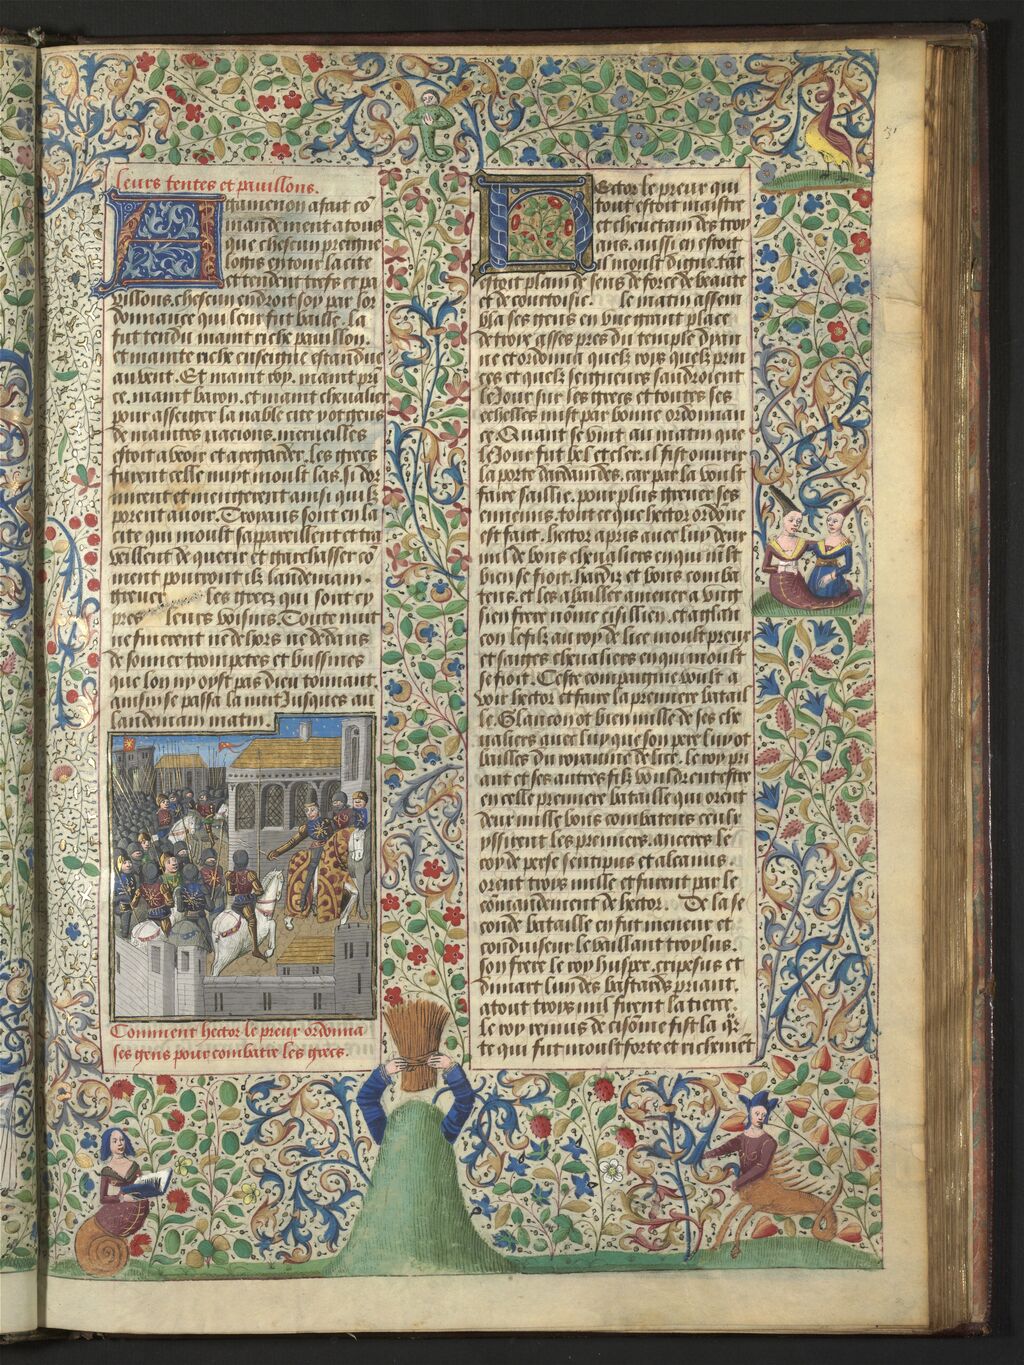 leurs tentes et pauillons.
Agamenon a fait cō
mandement a tous
que chescun preigne
logis entour la cite
et tendent trefs et pa
uillons. chescun endroit soy par lor
donnance qui leur fut baille. la
fut tendu maint riche pauillon.
et mainte riche enseigne estandue
au vent. Et maint roy. maint pri
ce. maint baron. et maint cheualier
pour asseiger la nable cite y ot gens
de maintes nacions. merueilles
estoit a veoir et a regarder. les grecs
furent celle nuyt moult las. si dor
mirent et mengerent ainsi quilz
porent auoir. Troyans sont en la
cite qui moult sappareillent et tra
veillent de querir et garebasser cō
ment pourront ilz landemain
greuer les grecz qui sont cy
pres leurs voisins. Toute nuit
ne finerent ne dehors ne dedans
de sonner trompetes et bussines
que lon ny oyst pas dieu tonnant.
ainsi se passa la nuit Jusques au
landemain matin.
Comment hector le preux ordonna
ses gens pour combatre les grecs.
Hector le preux qui
tout estoit maistre
et cheuetain des troy
ans. aussi en estoit
il moult digne. tāt
estoit plain de sens de force de beaute
et de courtoisie. le matin assem
bla ses gens en vne grant place
de troye asses pres du temple dyan
ne et ordonna quelz roys quelz prin
ces et quelz seigneurs saudroient
le Jour sur les grecs et toutes ses
eschelles mist par bonne ordonnan
ce. Quant se vint au matin que
le Jour fut bel et cler. il fist ouurir
la porte dardanides. car par la voult
faire saillie. pour plus greuer ses
ennemis. tout ce que hector ordōne
est fait. hector a pris auec luy deux
mil de bons cheualiers en qui moult
bien se fioit. hardiz et bons comba
tens. et les a bailler amener a vint
bien frere nōme cisilien. et a glan
con le filz au roy de lice moult preux
et saiges cheualiers en qui moult
se fioit. Ceste compaignie voult a
voir hector et faire la premiere batail
le. Glancon ot bien mille de ses che
ualiers auec luy que son pere luy ot
bailles du royaume de lice. le roy pri
ant et ses autres filz vouldrent estre
en celle premiere bataille qui orent
deux mille bons combatens ceulx
yssirent les premiers. auec eres le
roy de perse sentipus et alcanus.
orent troys mille et furent par le
cōmandement de hector. De la se
conde bataille en fut meneur et
conduiseur le vaillant troylus.
son frere le roy husper. cripesus et
dimart lun des bastards priant.
a tout troys mil furent la tierce.
le roy remus de cisōnie fist la qr̄
te qui fut moult forte et richemēt